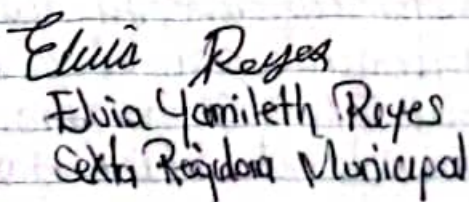 Elvia Reyes
Elvia Yamileth Reyes
Sexta Regidora Municipal